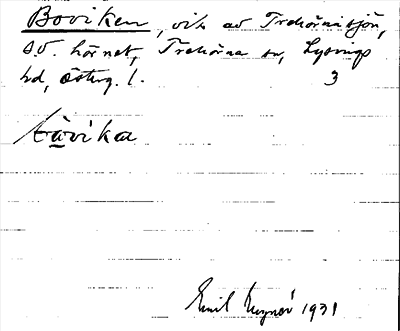 Boviken, vik av Trehörnitsjön,
S.V. hörnet, Trehörna sn, Lysings
hd, Österg. l. 3
bàvikɑ
Emil 1931